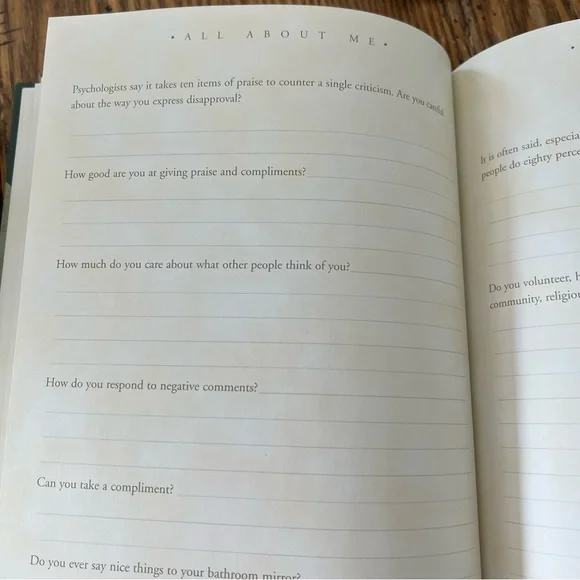 • ALL ABOUT ME •
Psychologists say it takes ten items of praise to counter a single criticism. Are you careful
about the way you express disapproval?
How good are you at giving praise and compliments?
How much do you care about what other people think of you?
How do you respond to negative comments?
Can you take a compliment?
Do you ever say nice things to your bathroom mirror?
It is often said, especia
people do eighty perce
Do you volunteer, H
community, religiou